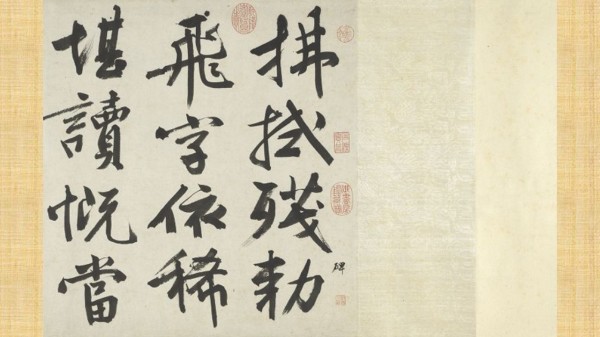 碑
拂拭殘勅
飛字依稀
堪讀慨當